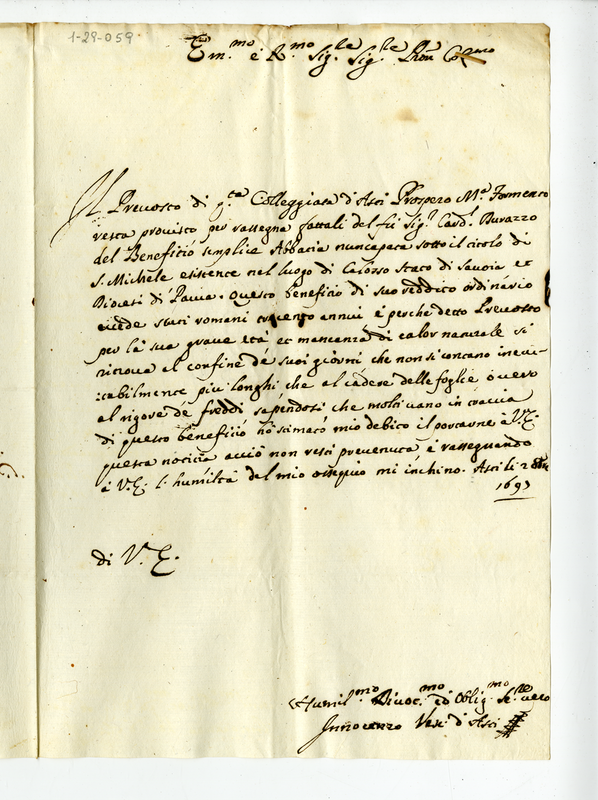 1-29-059
Em.mo e R.mo Sig.re Sig.re Pron Col.mo
Il Prevosto di q.ta Colleggiata d'Asti Prospero M.a Formento
resta provisto per rassegna fattali del fù Sig.r Card. Durazzo
del Beneficio semplice Abbacia nuncapata sotto il titolo di
S. Michele esistente nel luogo di Calosso Stato di Savoia et
Diocesi di Pavia. Questo beneficio di suo reddito ordinario
eccede scuti romani trecento annui è perche detto Prevosto
per la sua grave età et mancanza di calor naturale si
ritrova al confine de suoi giorni che non si contano inevi-
:tabilmente piu longhi che al cadere delle foglie o vero
al rigore de freddi sapendosi che molti vano in traccia
di questo beneficio hò stimato mio debito il portarne à V.E.
questa noticia acciò non resti prevenuta è rassegnando
à V.E. l'humiltà del mio ossequio mi inchino. Asti li 2
1693
di V.E.
Humil.mo Divot.mo ed Oblig.mo Se.re vero
Innocenzo Ves. d'Asti